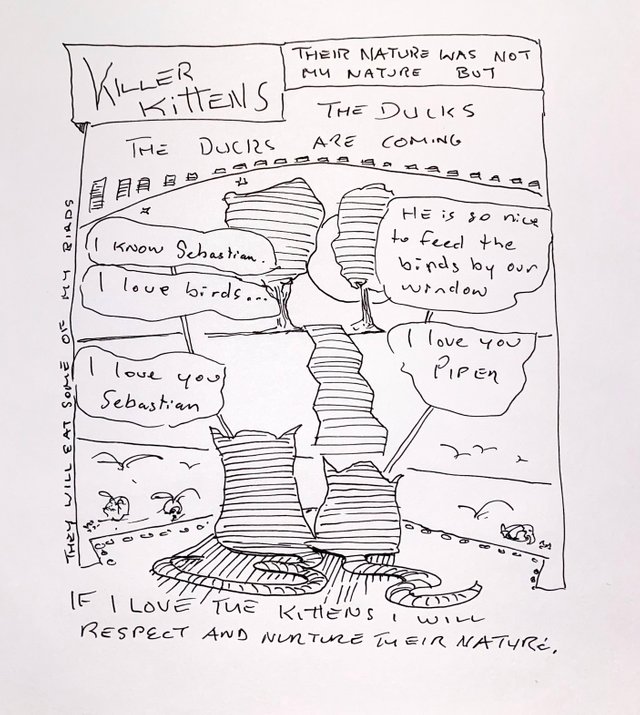 KILLER
KITTENS
THEIR NATURE WAS NOT
MY NATURE BUT
THE DUCKS
THE DUCKS ARE COMING
I KNOW Sebastian.
I love birds...
HE is so nice
to feed the
birds by our
window
I love you
Sebastian
I love you
PIPER
THEY WILL EAT SOME OF MY BIRDS
IF I LOVE THE KITTENS I WILL
RESPECT AND NURTURE THEIR NATURE.